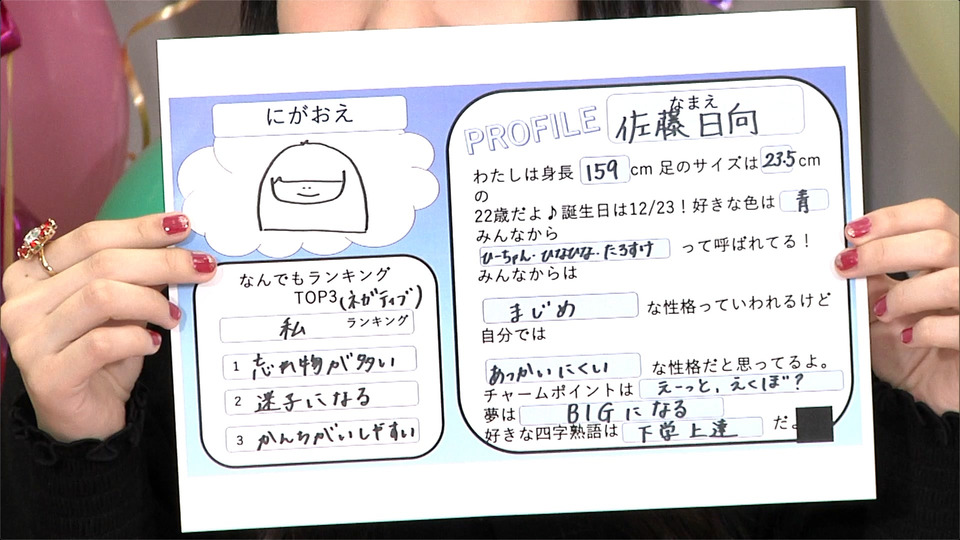 にがおえ
なんでもランキング
TOP3(ネガティブ)
私 ランキング
1 忘れ物が多い
2 迷子になる
3 かんちがいしやすい
PROFILE
なまえ
佐藤日向
わたしは身長 159 cm 足のサイズは 23.5 cm
の
22歳だよ♪誕生日は12/23！好きな色は 青
みんなから
ひーちゃん・ひなひな・たろすけ って呼ばれてる！
みんなからは
まじめ な性格っていわれるけど
自分では
あつかいにくい な性格だと思ってるよ。
チャームポイントは えーっと、えくぼ？
夢は BIGになる
好きな四字熟語は 下学上達 だよ